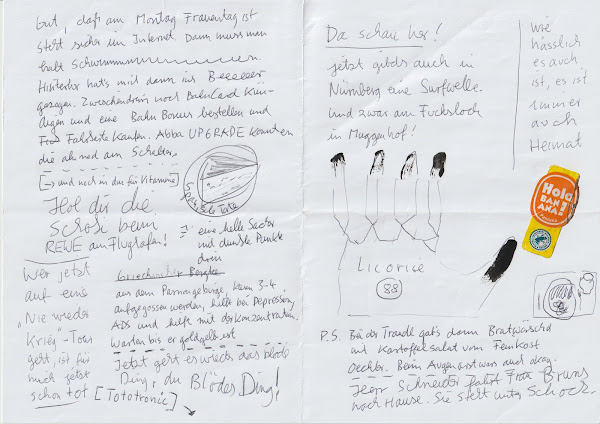 Gut, daß am Montag Frauentag ist
steht sicher im Internet. Dann muss man
halt Schwimmen.
Hinterher hat's mich dann ins Beeeeeer
gezogen. Zwischendrin noch BahnCard Kün-
digen und eine Bahn Bonus bestellen und
Fahrkarte kaufen. Abba UPGRADE konnten
die ah ned am Schalter.
[→ und noch in dm für Vitamine]
Hol dir die
Schoki beim
REWE am Flughafen!
eine helle Sector
und dunkle Punkte
drin
Wer jetzt
auf eine
"Nie wieder
Krieg"-Tour
geht, ist für
mich jetzt
schon tot [Tototronic]
Griechischer Bergtee
aus dem Parnongebirge. Kann 3-4
aufgegossen werden, hilft bei Depression,
ADS und hilft mit der Konzentration.
Warten bis er goldgelb ist
Jetzt geht es wieder das blöde
Ding, du BLÖDES Ding!
Da schau her!
jetzt gibds auch in
Nürnberg eine Surfwelle.
Und zwar am Fuchsloch
in Muggenhof!
wie
hässlich
es auch
ist, es ist
immer
auch
Heimat
Hola
BAN
ANA!
Licorice
88
P.S. Bei der Traudl gab's dann Bratwärschd
mit Kartoffelsalat vom Feinkost
Oechler. Beim Augenarzt wars auch okay.
Herr Schneider fährt Frau Bruns
nach Hause. Sie steht unter Schock.